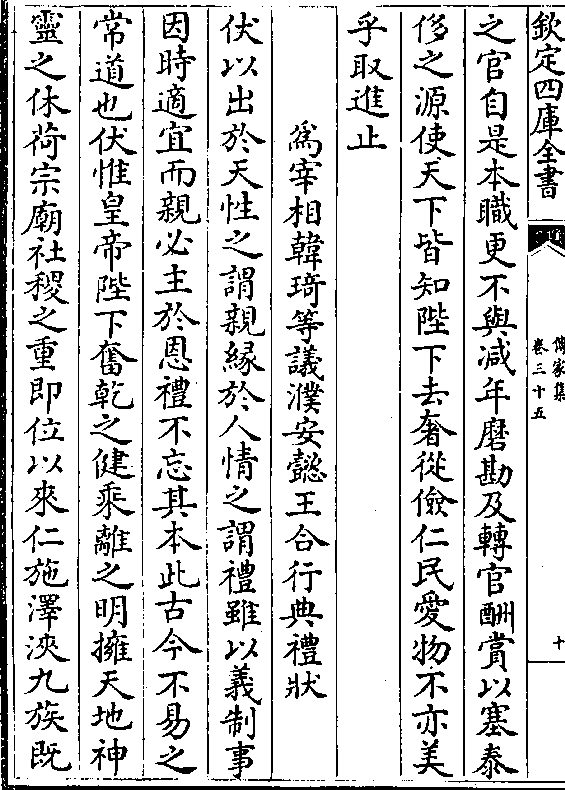 欽定四庫全書
傳家集
卷三十五
十
之官自是本職更不與减年磨勘及轉官酬賞以塞泰
侈之源使天下皆知陛下去奢從儉仁民愛物不亦美
乎取進止
為宰相韓琦等議濮安懿王合行典禮狀
伏以出於天性之謂親緣於人情之謂禮雖以義制事
因時適宜而親必主於恩禮不忘其本此古今不易之
常道也伏惟皇帝陛下奮乾之健乘離之明擁天地神
靈之休荷宗廟社稷之重即位以來仁施澤浹九族既